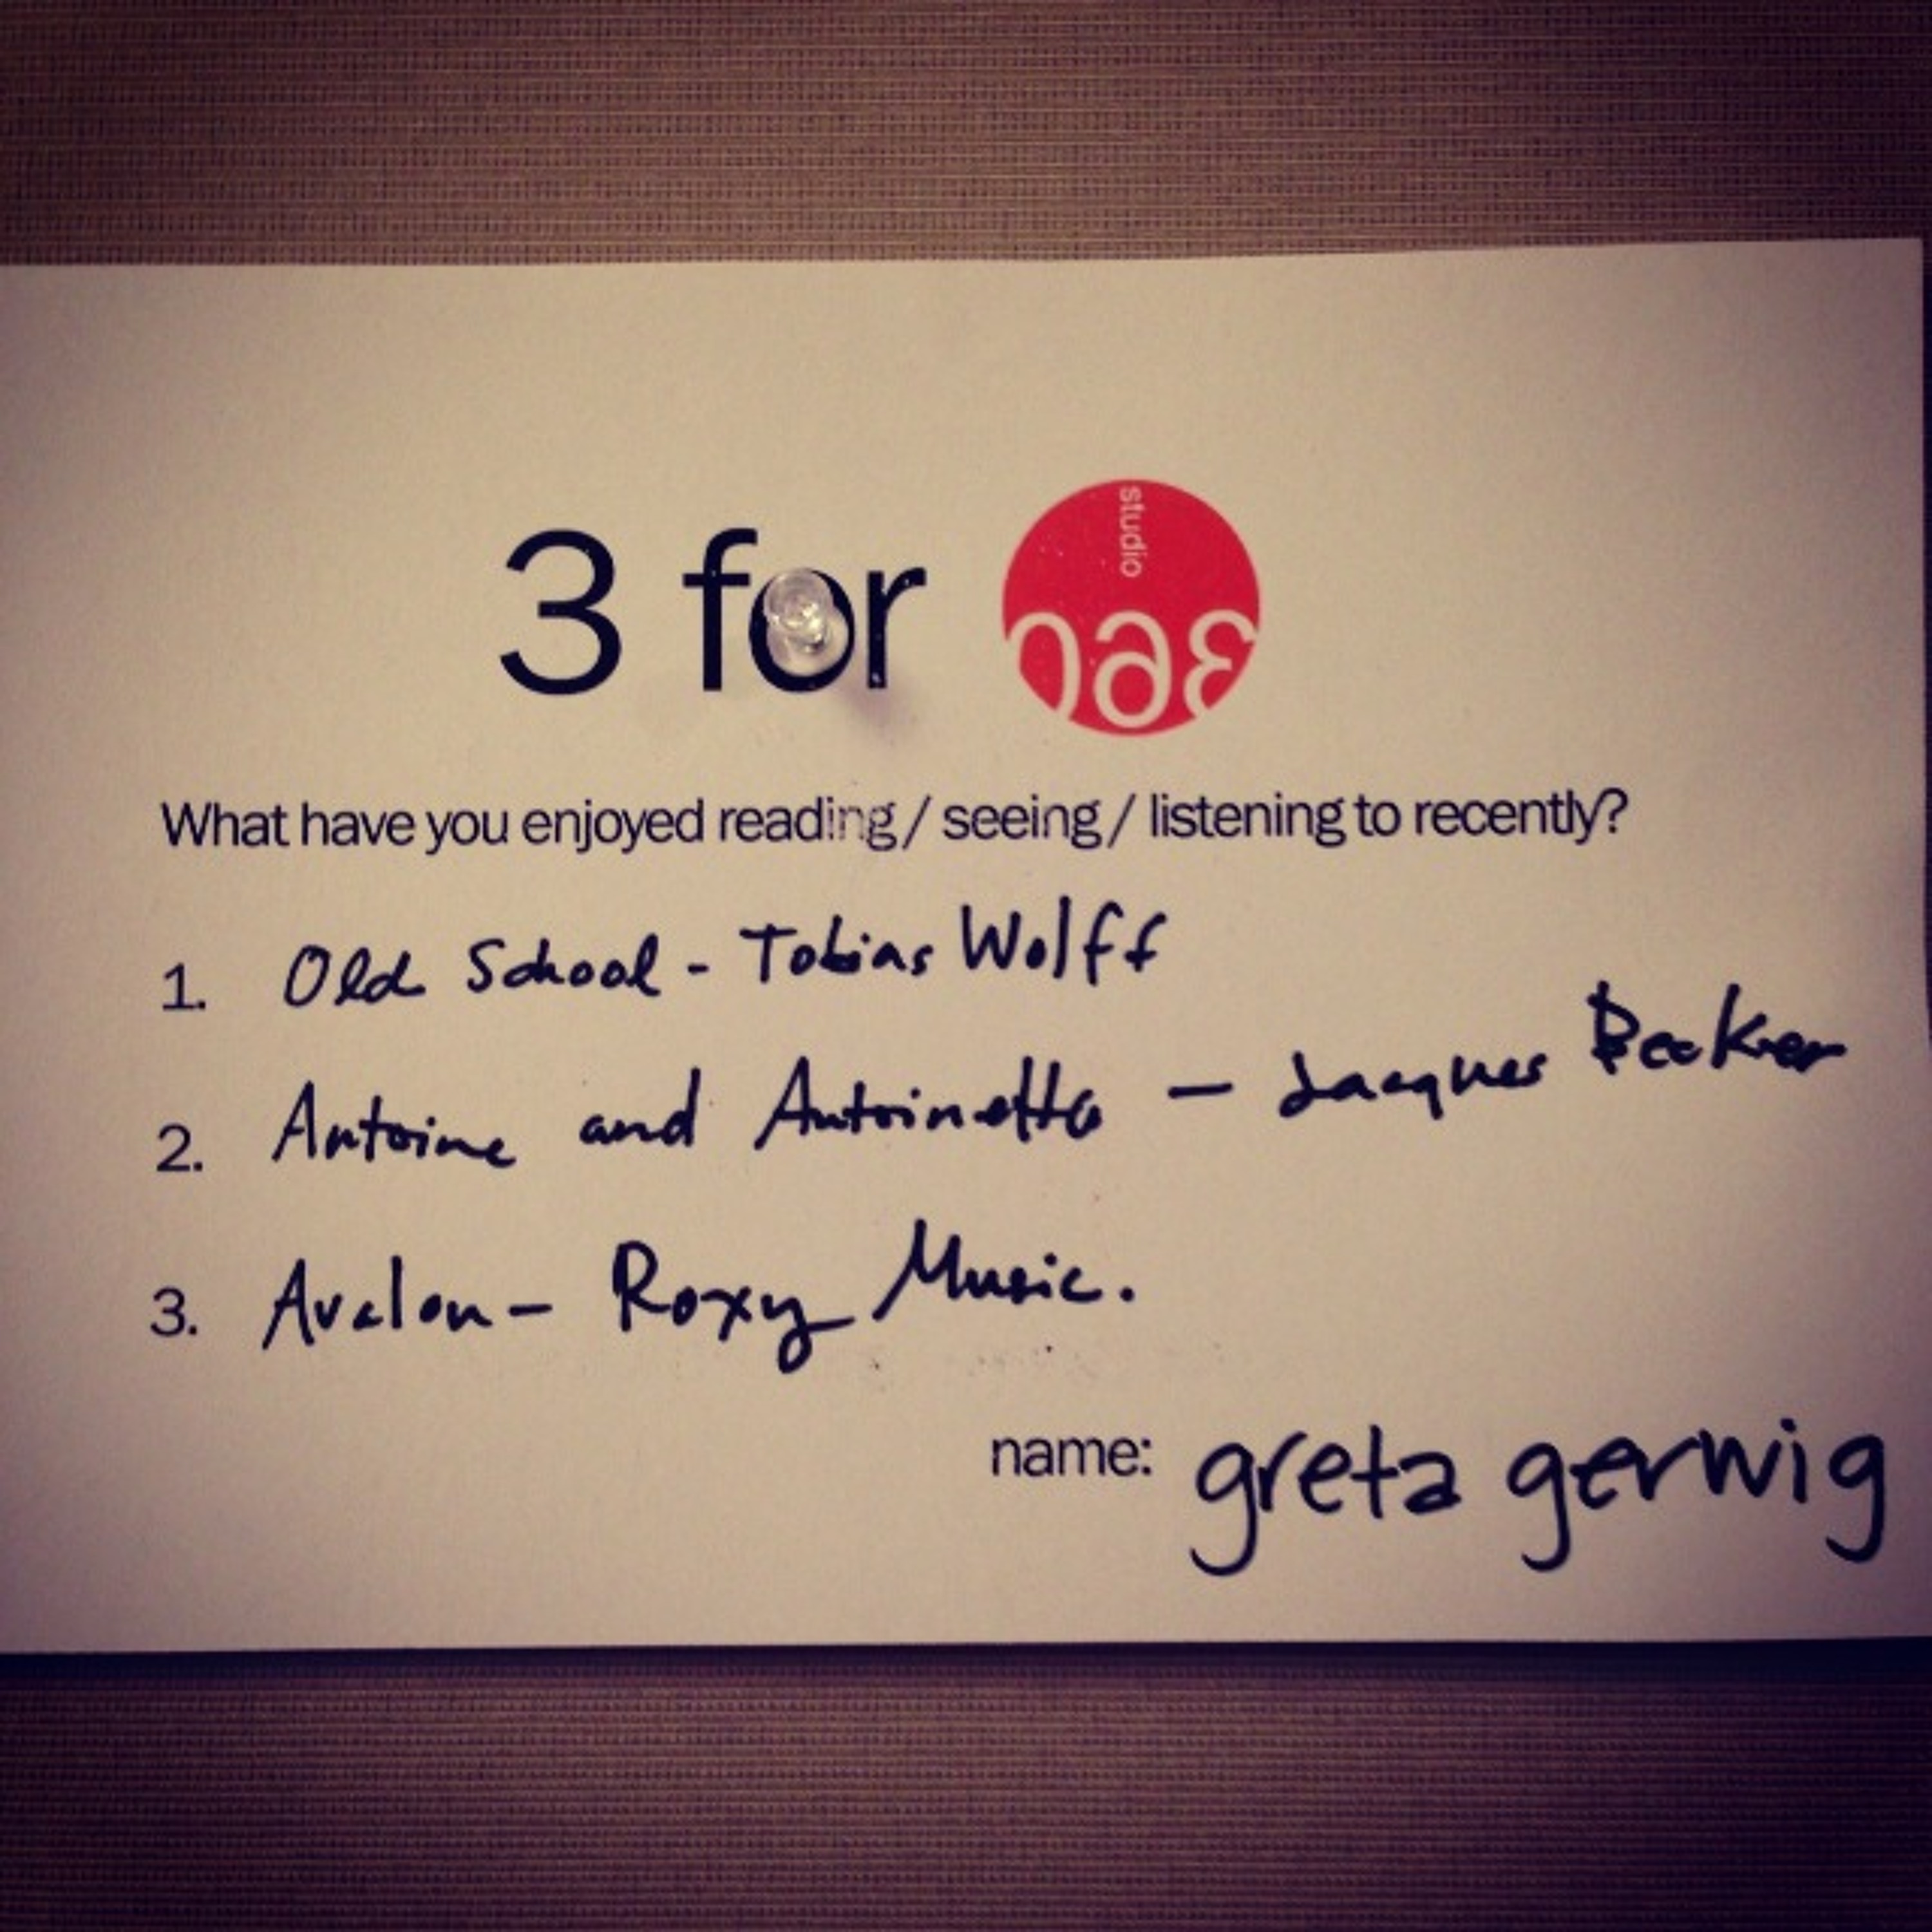 3 for studio 360
What have you enjoyed reading / seeing / listening to recently?
1. Old School - Tobias Wolff
2. Antoine and Antoinette - Jacques Becker
3. Avalon - Roxy Music.
name: greta gerwig